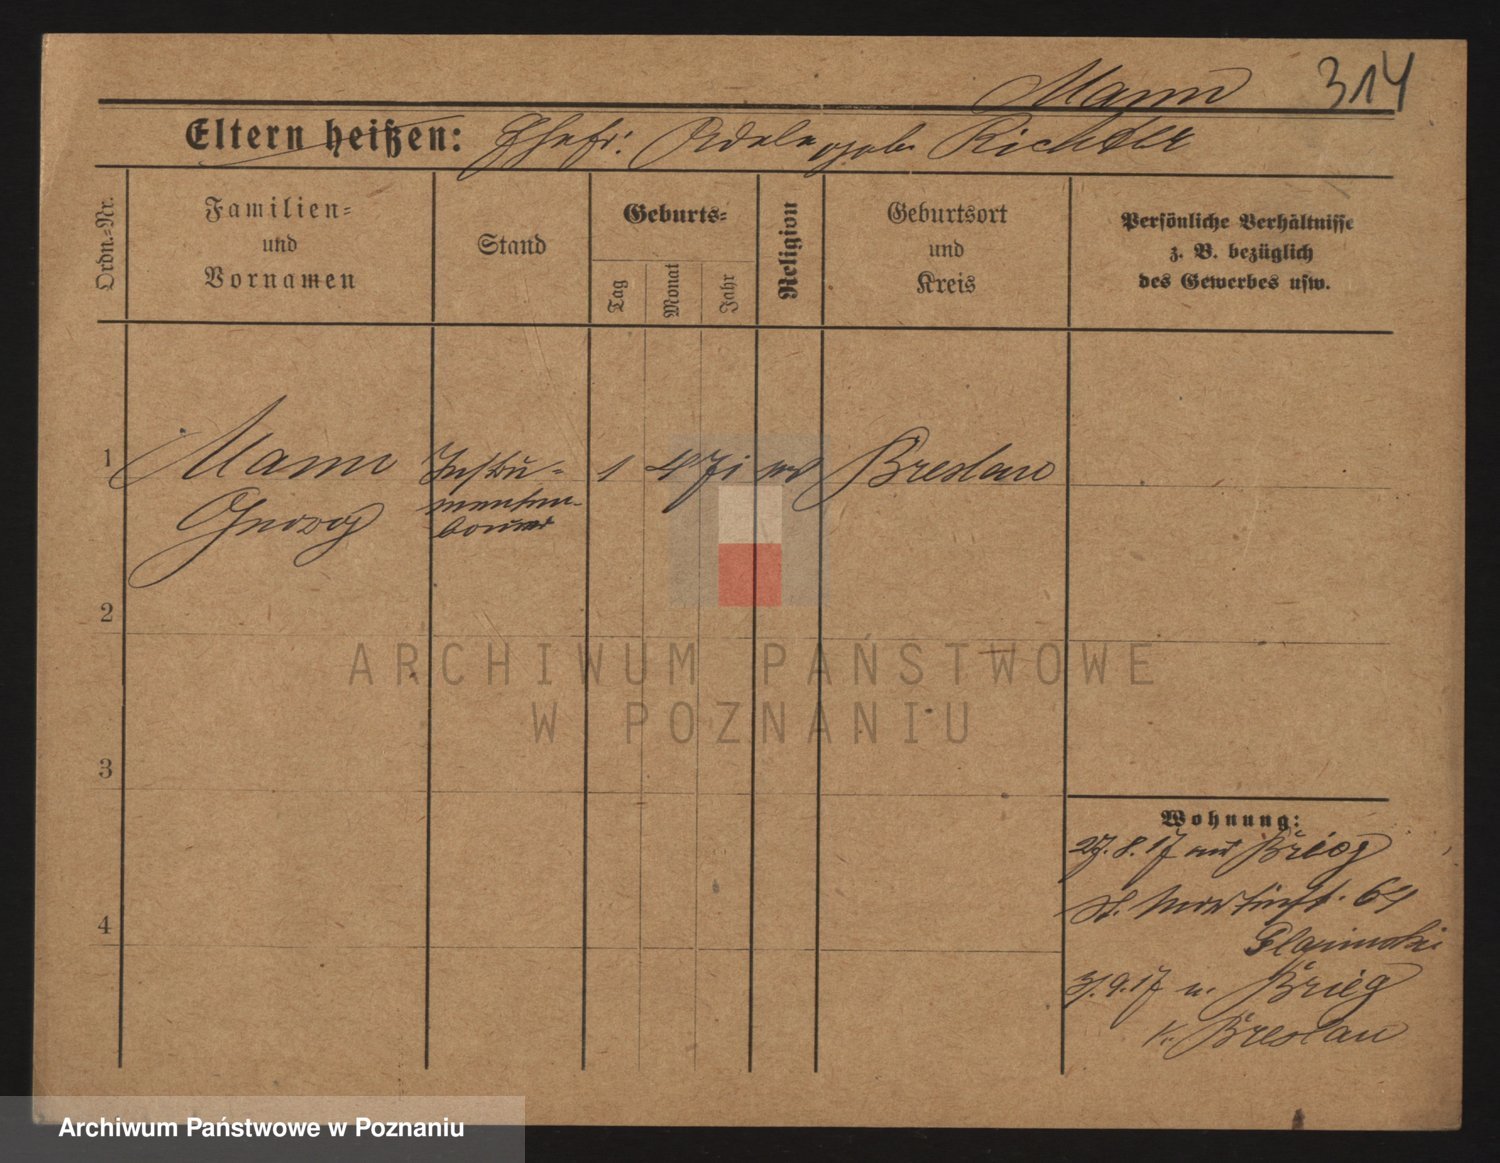 Mann 314
Eltern heißen: Ehefr: Adele geb. Richter
Ordn.-Nr.
Familien-
und
Vornamen
Stand
Geburts-
Tag
Monat
Jahr
Religion
Geburtsort
und
Kreis
Persönliche Verhältnisse
z. B. bezüglich
des Gewerbes usw.
1 Mann Instru- 1 4 71 Breslau
Georg menten-
bauer
2
3
4
ARCHIWUM PAŃSTWOWE
W POZNANIU
Wohnung:
27. 8. 17 aus Brieg
St. Martinst. 64
3. 9. 17 n. Brieg
Breslau
Archiwum Państwowe w Poznaniu